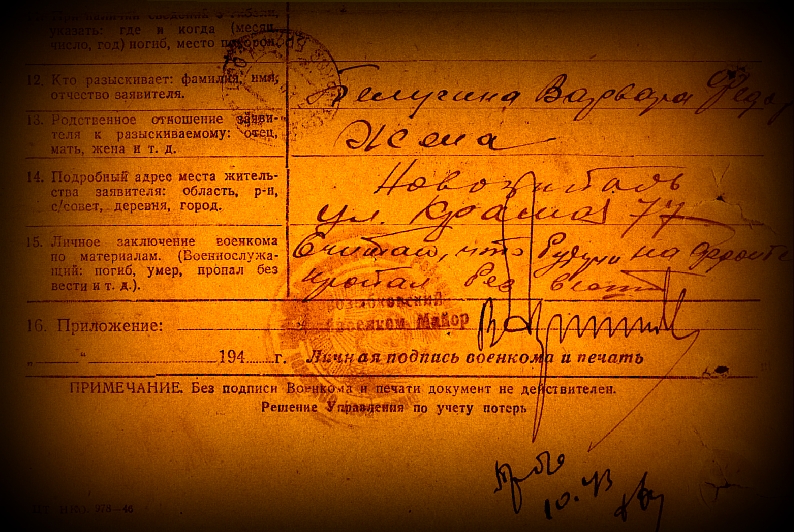 указать: где и когда (месяц,
число, год) погиб, место похорон
12. Кто разыскивает: фамилия, имя,
отчество заявителя.
Белугина Варвара Федор
13. Родственное отношение заяви-
теля к разыскиваемому: отец,
мать, жена и т. д.
Жена
14. Подробный адрес места житель-
ства заявителя: область, р-н,
с/совет, деревня, город.
ул. Красная 77
15. Личное заключение военкома
по материалам. (Военнослужа-
щий: погиб, умер, пропал без
вести и т. д.).
Считаю, что будучи на фронте
пропал без вести
военком Майор
16. Приложение:
„ “ 194 г. Личная подпись военкома и печать
ПРИМЕЧАНИЕ. Без подписи Военкома и печати документ не действителен.
Решение Управления по учету потерь
10.43